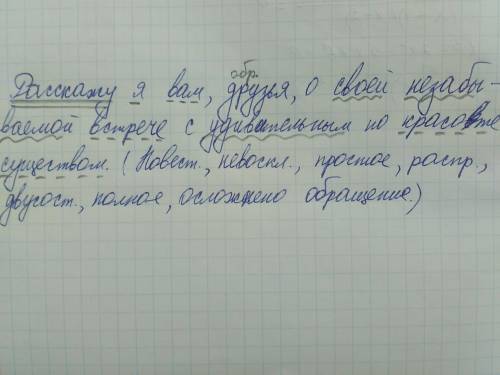 обр.
Расскажу я вам, друзья, о своей незабы-
ваемой встрече с удивительным по красоте
существом. (Повест., невоскл., простое, распр.,
двусост., полное, осложнено обращение.)